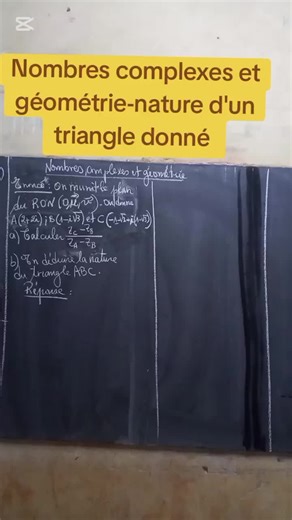 Cut
Nombres complexes et
géométrie-nature d'un
triangle donné
Nombres complexes et géométrie
Enoncé: On munit le plan
du RON (O, u, v). On donne
A(2+2i); B(1-i√3) et C(-1-√3+i(1-√3))
a) Calculer (z_C - z_B)/(z_A - z_B)
b) En déduire la nature
du triangle ABC.
Réponse: